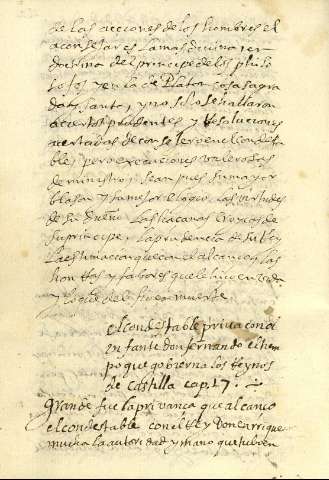 de las acciones de los hombres el
aconsejar es la mas divina en
doctrina del principe de los philo
sofos y en la de Platon cosa sagra
da y santa, y no solo se hallaron
aciertos prudentes y Resoluciones
acertadas de con se
bles pero execuciones valerosas
de ministro, sean pues su mayor
blason y su mejor elogio, las virtudes
de su dueño las haçanas eroycas de
su principe, la prudencia de su Rey
la estimacion que con el alcanço las
honrras y fabores que le hiço en vida
y lo que del hiço en muerte
el condestable priva con el
infante don fernando el tiem
po que gobierna los Reynos
de castilla cap. 17.
Grande fue la privança que alcanço
el condestable con el Rey Don enrrique
mucha la autoridad y mano que tubo en